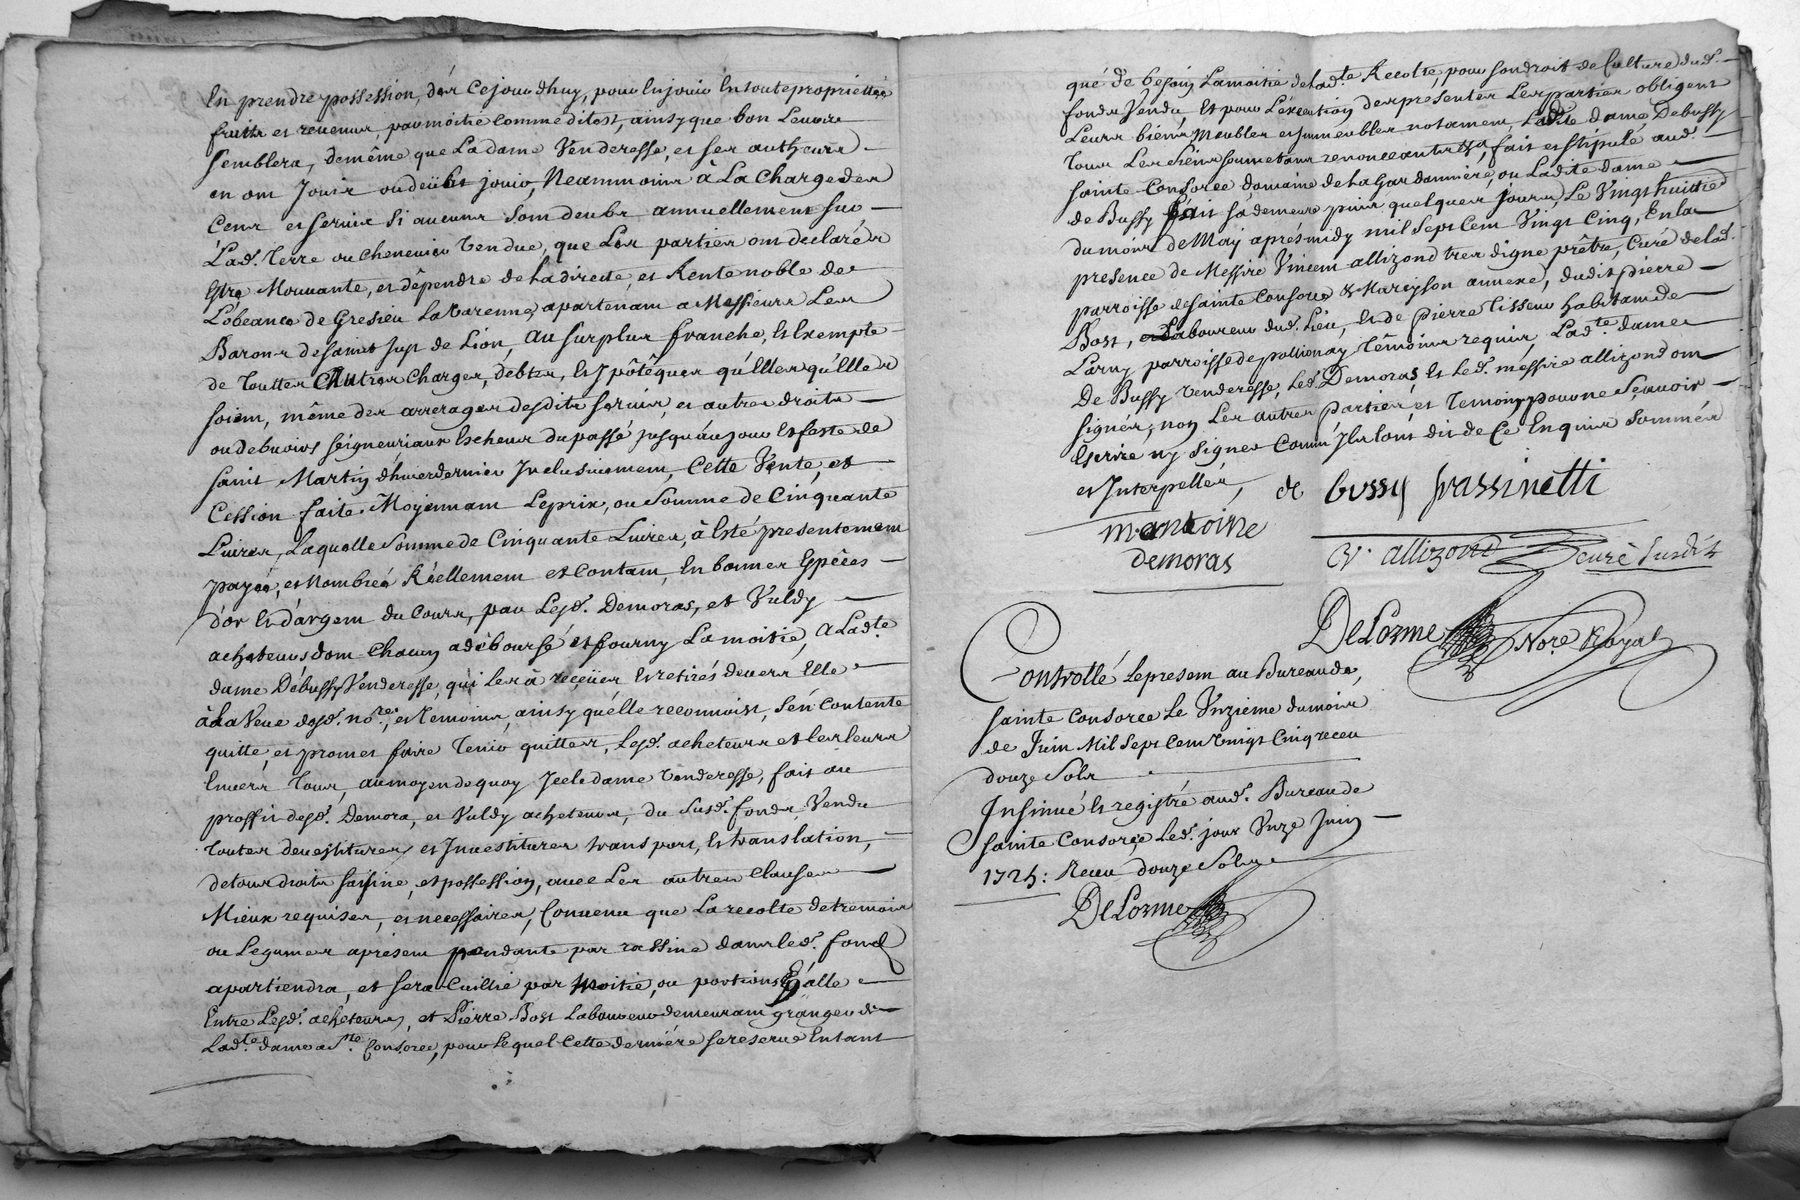 En prendre possession, dés Cejourdhuy, pour Enjouir Entoute proprietté,
fruits et revenus, par moitié Comme ditest, ainsy que bon Leur
semblera, demême que La dame Venderesse, et ses autheurs
en ont Jouir ou deübt jouir, Neanmoins à La Charge des
Cens et servis si aucuns sont deubs annuellement sur
Lad. Terre ou cheneuier Vendue, que Les parties ont declarés
Estre Mouuante, et dépendre de La directe, et Rente noble de
Lobeance de Gresieu La Varenne, apartenant a Messieurs Les
Barons de saint Just de Lion, Au surplus franche, et Exempte
de Touttes Autres Charges, debtes, et ypôtêques qu'Elles qu'Elles
soient, même des arrerages desdits servis, et autres droits
ou debuoirs seigneuriaux Escheus du passé jusqu'au jour et feste de
saint Martin d'hiuer dernier Inclusiuement, Cette Vente, et
Cession faite Moyennant Le prix, ou somme de Cinquante
Liures, Laquelle somme de Cinquante Liures, à Esté presentement
payée, et Nombrée Réellement et Contant, En bonnes Espêces
d'or et d'argent du Cours, par Lesd. Demoras, et Vuldy
acheteurs dont Chacun a déboursé et fourny La moitié, A Lad.te
dame Débussy Venderesse, qui Les à reçüier et retirés deuers Elle
à La Veüe desd. no.re, et Temoins, ainsy qu'élle reconnoist, s'en Contente
quitte, et promet faire Tenir quittes, Lesd. acheteurs et Les Leurs
Enuers Tous, au moyen de quoy Jcelle dame Venderesse, fait au
proffit desd. Demora, et Vuldy acheteurs, du susd. fonds Vendu
Toutes deuestitures, et Jnuestitures transport, et translation,
de tous droits saisine, et possession, auec Les autres Clauses
Mieux requises, et necessaires, Conuenu que La recolte de tremois
ou Legumes apresent pendante par rassine dans led. fond
apartiendra, et sera Cuillie par Moitié, ou portions Egalle
Entre Lesd. acheteurs, et Pierre Bost Laboureur demeurant granger de
Lad.te dame a S.te Consorce, pour Lequel Cette derniére se reserue Entant
qué de besoin La moitié de Lad.te Recolte, pour son droit de Culture dud.
fonds Vendu, Et pour L'execution des presentes Les parties obligent
Leurs biens Meubles et jmmeubles notament, Ladite dame Debussy
Tous Les siens soumetans renonceants &a, fait et stipulé aud.
sainte Consorce domaine de La Gardonniere, ou Ladite dame
de Bussy fait sa demeure puis quelques jours, Le Vingthuitié
du mois de May aprés midy mil Sept Cent Vingt Cinq, En la
presence de Messire Vincent allizond tres digne prêtre, Curé de Lad.
parroisse de sainte Consorce & Marcyson annexe, dudit pierre
Bost, Laboureur dud. Lieu, et de Pierre Tisseur habitant de
Larny parroisse de pollionay Têmoins requis, Lad.te dame
De Bussy Venderesse, Led. Demoras, et Led. méssire allizond ont
signés, non Les autres parties, et Temoin pour ne sçauoir
Escrire ny signer Comm' jls l'ont dit de Ce Enquis sommés
et Interpellés,
de bussy frassinetti
mantoine
demoras
V. allizond curé susdit
DeLorme No.re Royal
Controllé Le present au Bureau de
sainte Consorce Le Vnzieme du mois
de Juin Mil Sept Cent Vingt Cinq receu
douze Sols
Insinué et registré aud. Bureau de
sainte Consorce Led. jour Vnze Juin
1725: Receu douze Sols
DeLorme